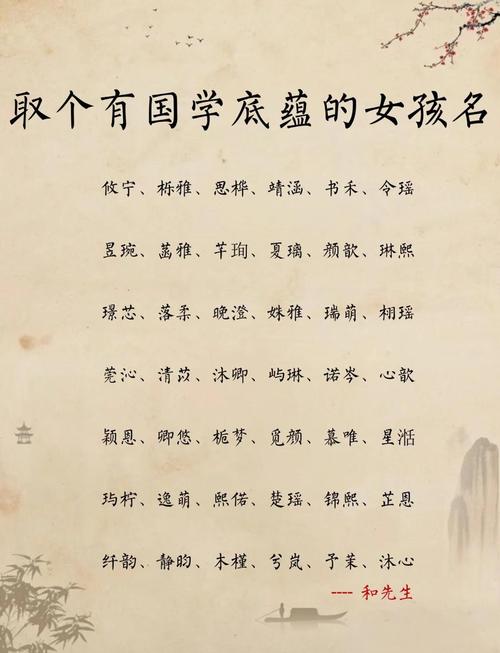 取个有国学底蕴的女孩名
攸宁、栎雅、思桦、靖涵、书禾、令瑶
昱琬、菡雅、芊珣、夏璃、颜歆、琳熙
璟芯、落柔、晚澄、姝雅、瑞萌、栩瑶
莞沁、清苡、沐卿、屿琳、诺岑、心歆
颖恩、卿悠、栀梦、觅颜、慕唯、星湉
玙柠、逸萌、熙偌、楚瑶、锦熙、芷恩
纤韵、静昀、木槿、兮岚、予茉、沐心
---- 和先生